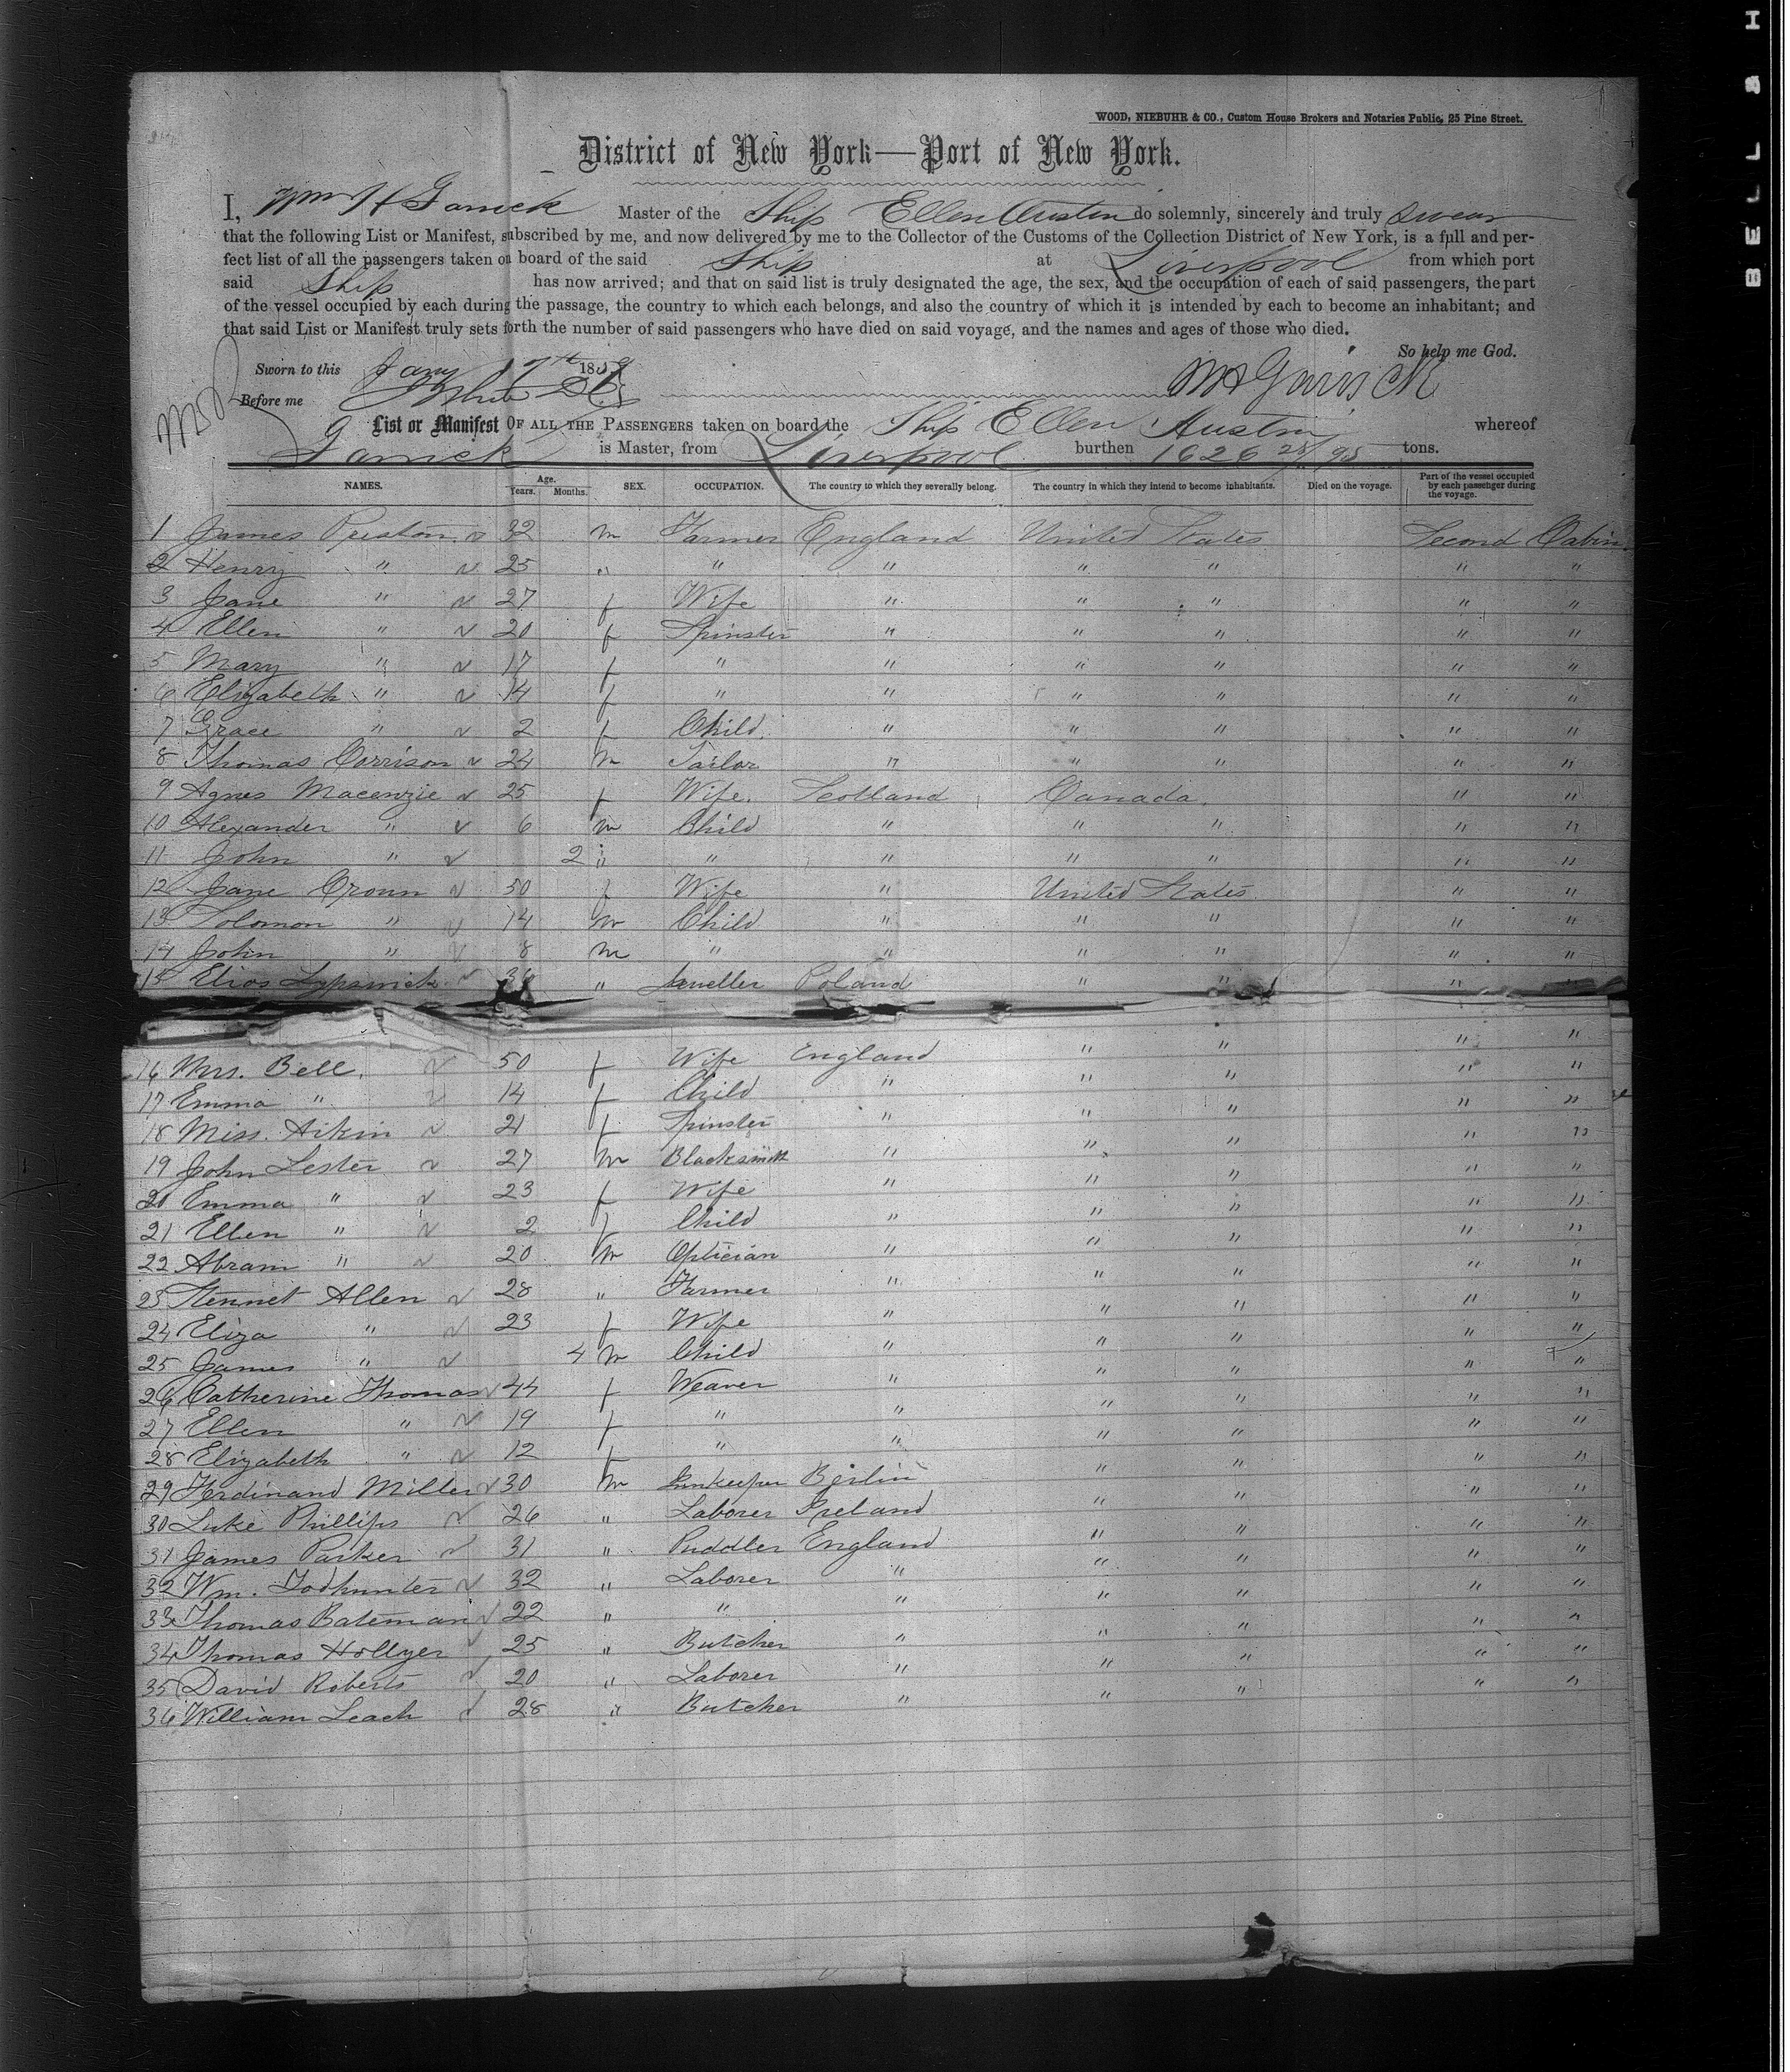 WOOD, NIEBUHR & CO., Custom House Brokers and Notaries Public, 25 Pine Street.
District of New York—Port of New York.
I, Wm H Garrick Master of the Ship Ellen Austin do solemnly, sincerely and truly swear
that the following List or Manifest, subscribed by me, and now delivered by me to the Collector of the Customs of the Collection District of New York, is a full and per-
fect list of all the passengers taken on board of the said Ship at Liverpool from which port
said Ship has now arrived; and that on said list is truly designated the age, the sex, and the occupation of each of said passengers, the part
of the vessel occupied by each during the passage, the country to which each belongs, and also the country of which it is intended by each to become an inhabitant; and
that said List or Manifest truly sets forth the number of said passengers who have died on said voyage, and the names and ages of those who died.
So help me God.
Sworn to this Jany 17th 185
Before me
Wm Garrick
List or Manifest OF ALL THE PASSENGERS taken on board the Ship Ellen Austin whereof
Garrick is Master, from Liverpool burthen 1626 28/95 tons.
NAMES. Age. Years. Months. SEX. OCCUPATION. The country to which they severally belong. The country in which they intend to become inhabitants. Died on the voyage. Part of the vessel occupied by each passenger during the voyage.
1 James Preston 32 m Farmer England United States Second Cabin
2 Henry " 25 " " " " " " "
3 Jane " 27 f Wife " " " " "
4 Ellen " 20 f Spinster " " " " "
5 Mary " 17 f " " " " " "
6 Elizabeth " 14 f " " " " " "
7 Grace " 2 f Child " " " " "
8 Thomas Corrison 24 m Tailor " " " " "
9 Agnes Macenzie 25 f Wife. Scotland Canada. " "
10 Alexander " 6 m Child " " " " "
11 John " 2 " " " " " " "
12 Jane Cronn 50 f Wife " United States " "
13 Solomon " 14 m Child " " " " "
14 John " 8 m " " " " " "
15 Elias " Jeweller Poland " " " "
16 Mrs. Bell. 50 f Wife England " " " "
17 Emma " 14 f Child " " " " "
18 Miss. Aikin 21 f Spinster " " " " "
19 John Lester 27 m Blacksmith " " " " "
20 Emma " 23 f Wife " " " " "
21 Ellen " 2 f Child " " " " "
22 Abram " 20 m Optician " " " " "
23 Stennet Allen 28 " Farmer " " " " "
24 Eliza " 23 f Wife " " " " "
25 James " 4 m Child " " " " "
26 Catherine Thomas 44 f Weaver " " " " "
27 Ellen " 19 f " " " " " "
28 Elizabeth " 12 f " " " " " "
29 Ferdinand Miller 30 m Innkeeper Berlin " " " "
30 Luke Phillips 26 " Laborer Ireland " " " "
31 James Parker 31 " Puddler England " " " "
32 Wm. Todhunter 32 " Laborer " " " " "
33 Thomas Bateman 22 " " " " " " "
34 Thomas Hollyer 25 " Butcher " " " " "
35 David Roberts 20 " Laborer " " " " "
36 William Leach 28 " Butcher " " " " "
BELL & H